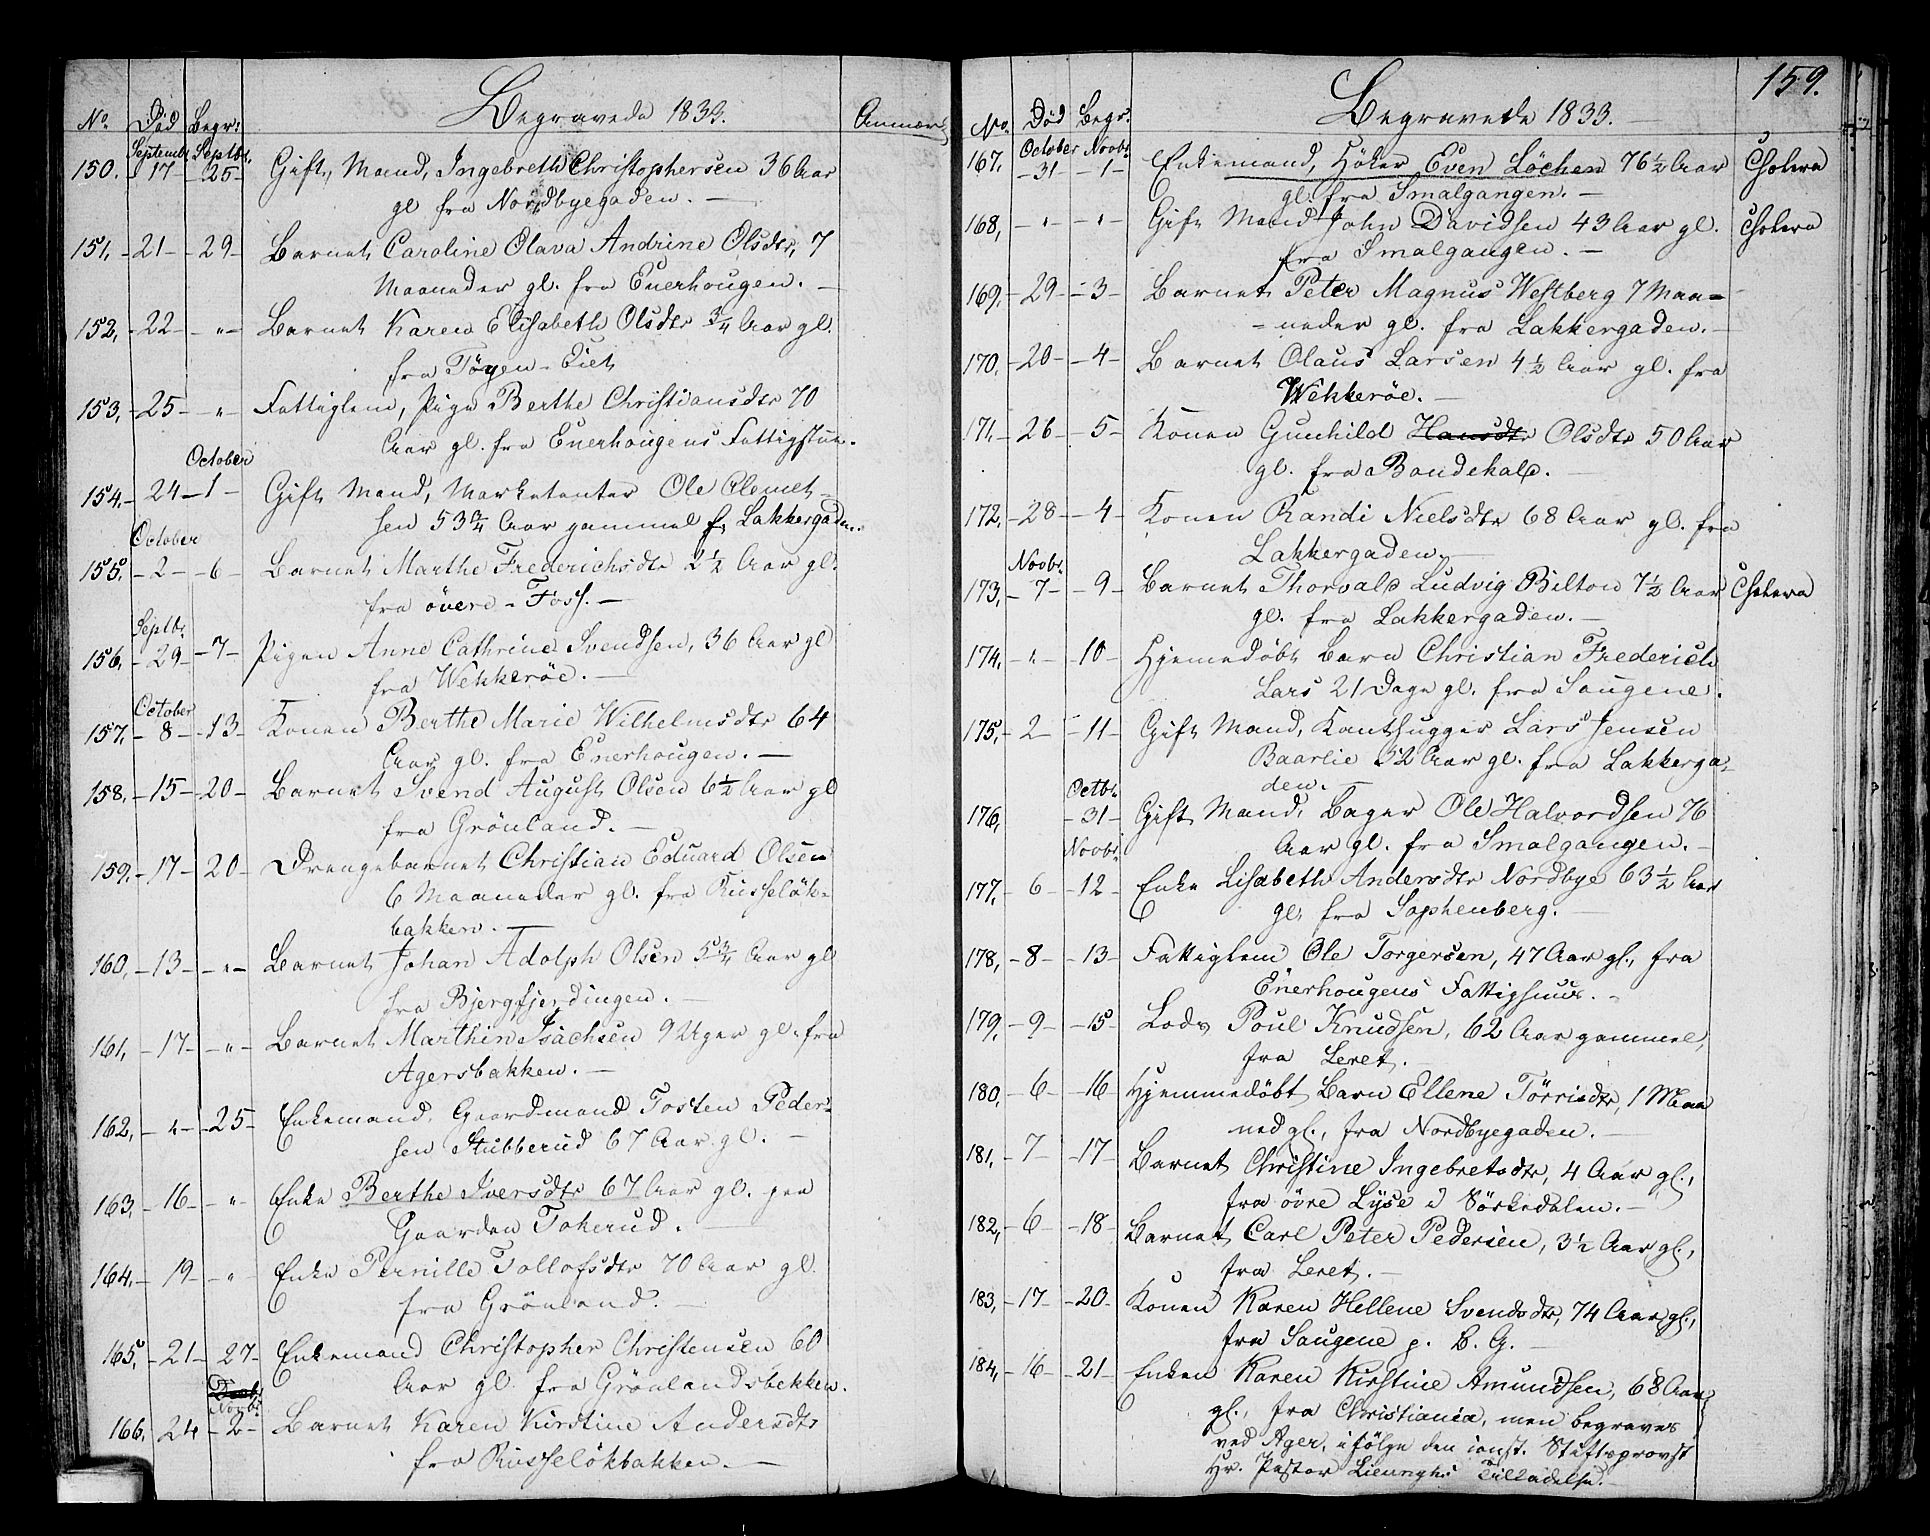 Begravede 1833.
No. Død Begr: Anmærk
Septembr. Septbr.
150. 17 25 Gift Mand, Ingebreth Christophersen 36 Aar
gl fra Nordbyegaden.
151, 21 29 Barnet Caroline Olava Andrine Olsdtr, 7
Maaneder gl. fra Enerhougen.
152, 22 " Barnet Karen Elisabeth Olsdtr 3/4 Aar gl.
fra Tøyen-Eiet
153, 25 " Fattiglem, Pige Berthe Christiansdtr 70
Aar gl. fra Enerhougens Fattigstue.
October
154. 24 1 Gift Mand, Marketenter Ole Clemet-
sen 53 3/4 Aar gammel f. Lakkergaden.
October
155. 2 6 Barnet Marthe Frederichsdtr 2 1/2 Aar gl.
fra övere-Foss.
Septbr.
156, 29 7 Pigen Anne Cathrine Svendsen, 36 Aar gl
fra Wekkeröe.
October
157, 8 13 Konen Berthe Marie Wilhelmsdtr 64
Aar gl. fra Enerhougen.
158. 15 20 Barnet Svend August Olsen 6 1/2 Aar gl
fra Grönland.
159, 17 20 Drengebarnet Christian Eduard Olsen
6 Maaneder gl. fra Russelök-
bakken.
160, 13 " Barnet Johan Adolph Olsen 5 3/4 Aar gl
fra Bjergfjerdingen.
161, 17 " Barnet Marthin Isachsen 9 Uger gl. fra
Agersbakken.
162, " 25 Enkemand, Gaardmand Tosten Peder-
sen Stubberud 67 Aar gl.
163, 16 " Enke Berthe Iversdtr 67 Aar gl. paa
Gaarden Tokerud.
164, 19 " Enke Pernille Tollofsdtr 70 Aar gl.
fra Grönland.
165, 21 27 Enkemand Christopher Christensen 60
Aar gl fra Grönlandsbakken.
Novbr.
166, 24 2 Barnet Karen Kirstine Andersdtr
fra Russelökbakken.
159.
Begravede 1833.
No. Død Begr.
October Novbr.
167. 31 1 Enkemand, Höker Even Löchen 76 1/2 Aar Cholera
gl. fra Smalgangen.
168, " " Gift Mand John Davidsen 43 Aar gl. Cholera
fra Smalgangen.
169, 29 3 Barnet Peter Magnus Westberg 7 Maa-
neder gl. fra Lakkergaden.
170, 20 4 Barnet Olaus Larsen 4 1/2 Aar gl. fra
Wekkeröe.
171, 26 5 Konen Gunhild Hansdtr Olsdtr 50 Aar
gl. fra Bondekald.
172, 28 4 Konen Randi Nielsdtr 68 Aar gl. fra
Lakkergaden.
Novbr.
173, 7 9 Barnet Thorvald Ludvig Bilton 7 1/2 Aar Cholera
gl. fra Lakkergaden.
174, " 10 Hjemedöbt Barn Christian Frederich
Lars 21 Dage gl. fra Saugene.
175, 2 11 Gift Mand, Kanthugger Lars Jensen
Baarlie 52 Aar gl. fra Lakkerga-
den.
Octbr.
176, 31 Gift Mand, Bager Ole Halvordsen 76
Aar gl. fra Smalgangen.
Novbr.
177, 6 12 Enke Lisabeth Andersdtr Nordbye 63 1/2 Aar
gl. fra Sophenberg.
178, 8 13 Fattiglem Ole Torgersen, 47 Aar gl., fra
Enerhougens Fattighuus.
179, 9 15 Lods Poul Knudsen, 62 Aar gammel,
fra Leret.
180, 6 16 Hjemmedöbt Barn Ellene Törrisdtr, 1 Maa
ned gl., fra Nordbyegaden.
181, 7 17 Barnet Christine Ingebretsdtr, 4 Aar gl.,
fra övre Lyse i Sörkedalen.
182, 6 18 Barnet Carl Peter Pedersen, 3 1/2 Aar gl.,
fra Leret.
183, 17 20 Konen Karen Hellene Svendsdtr, 74 Aar gl.,
fra Saugene p. B. G.
184, 16 21 Enken Karen Kirstine Amundsen, 68 Aar
gl., fra Christiania, men begraves
ved Ager, i fölge den const. Stiftsprovst
Hr. Pastor Tilladelse.